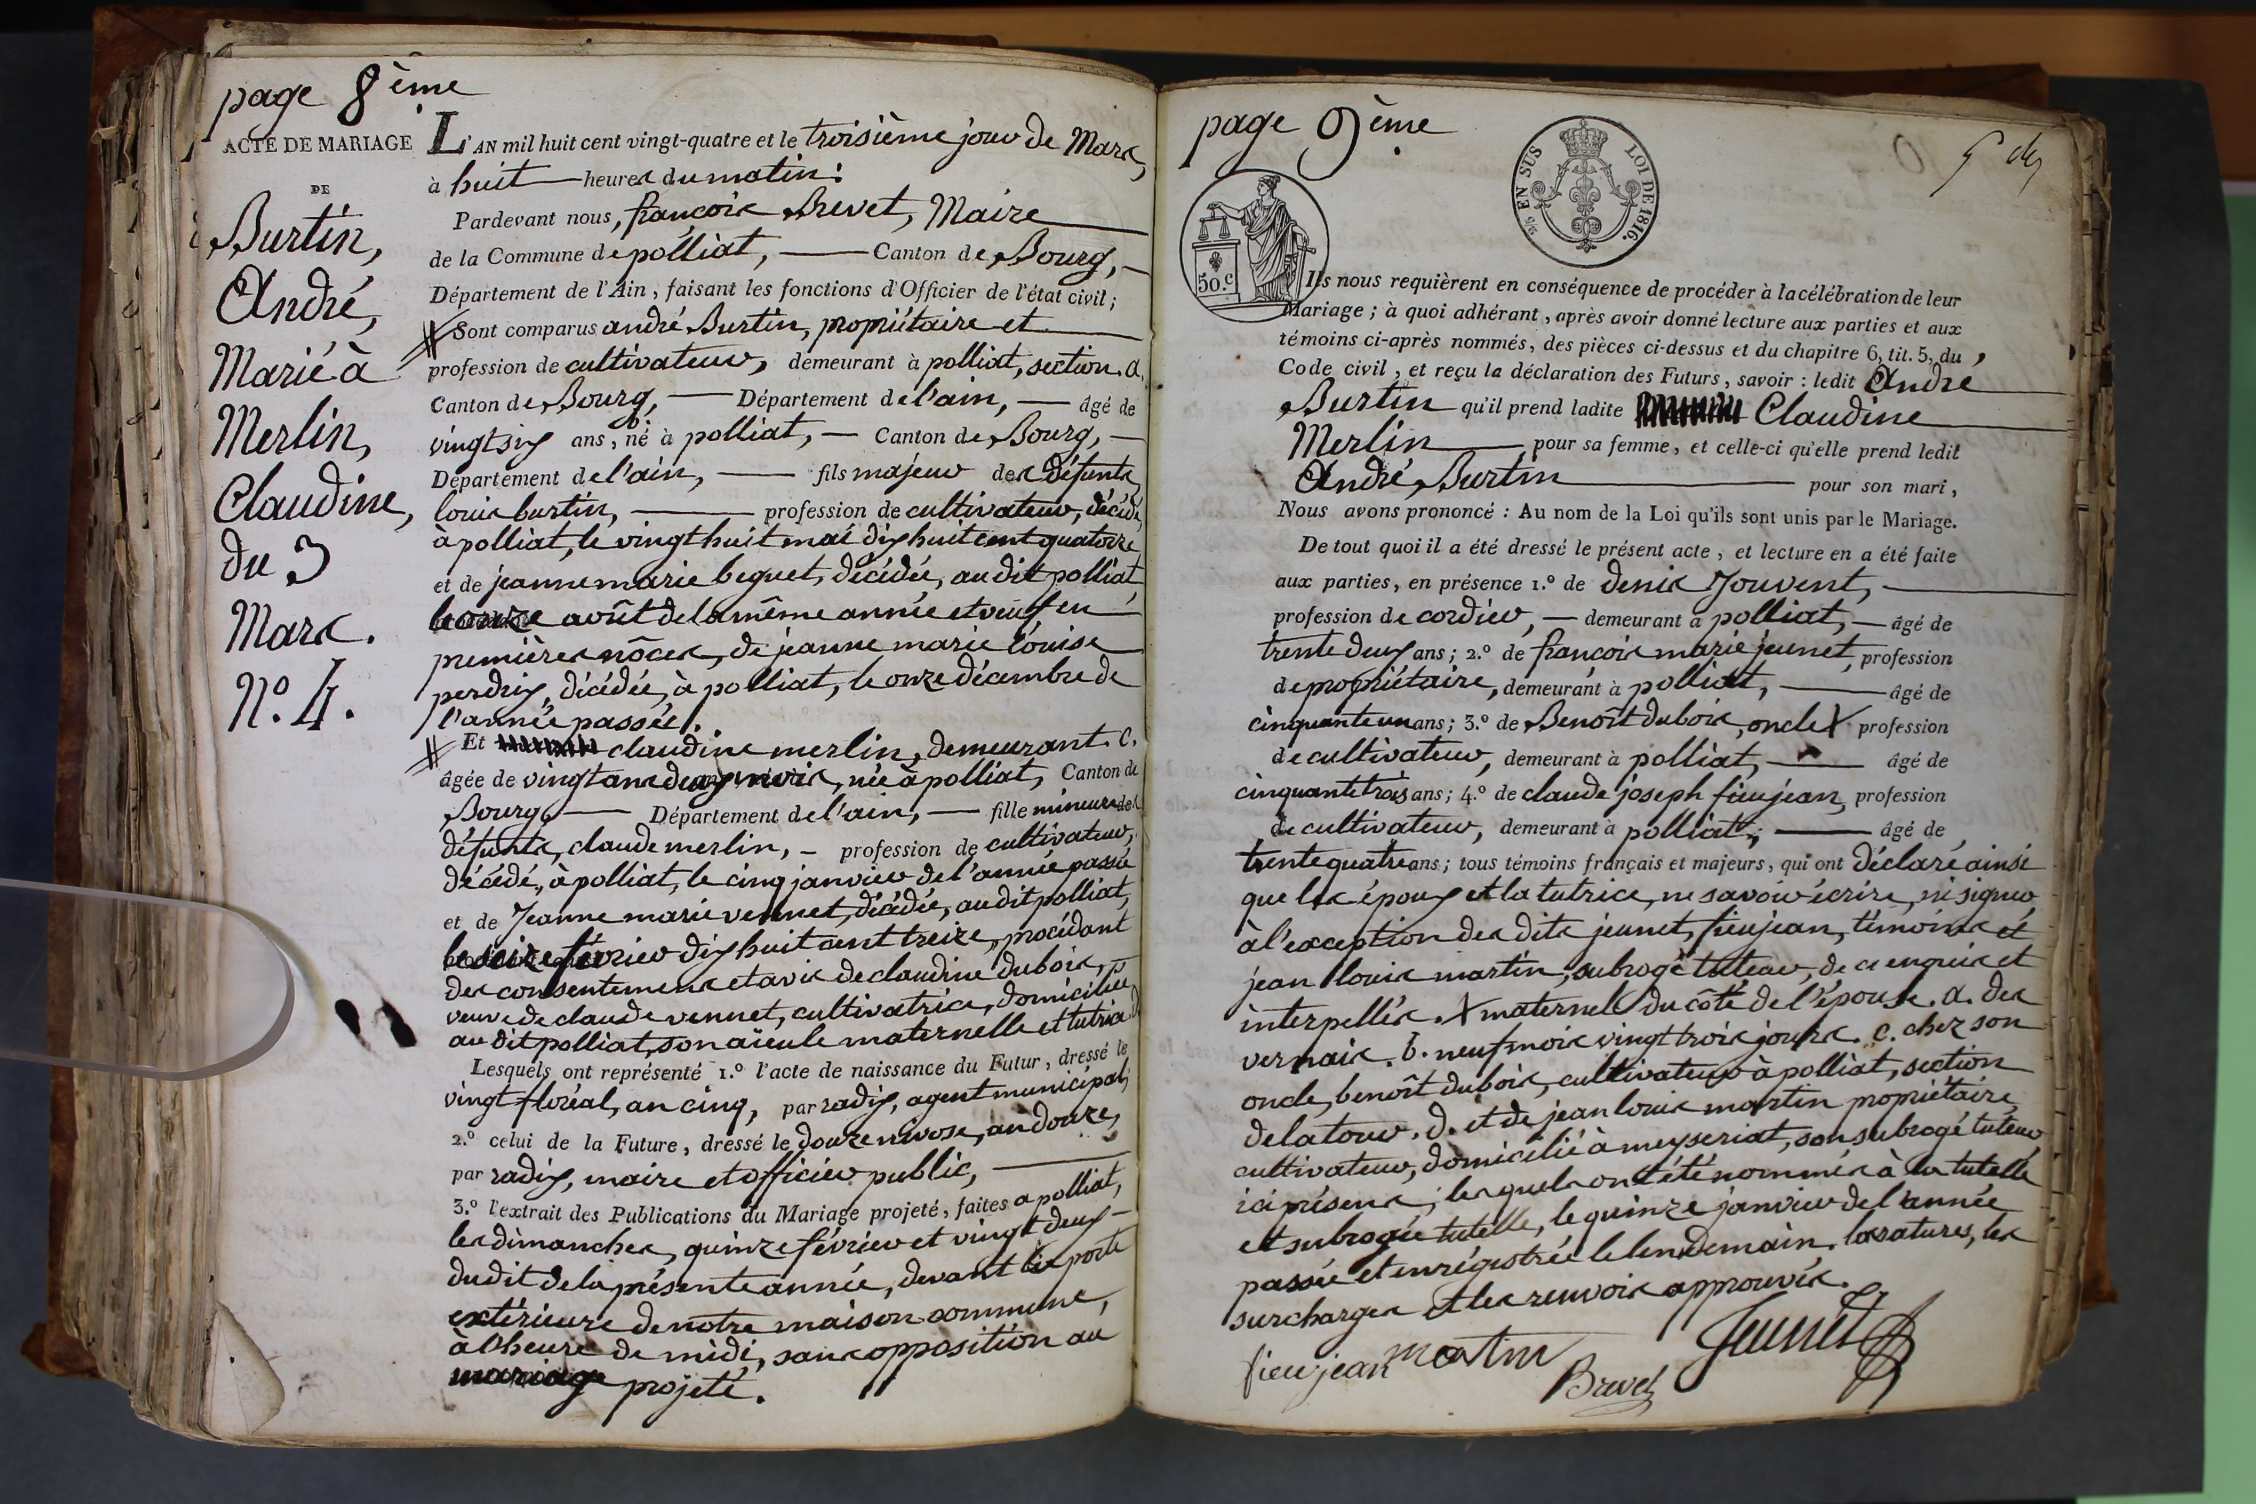 page 8ème
ACTE DE MARIAGE
DE
Burtin,
André,
Marié à
Merlin,
Claudine,
du 3
Mars.
N.º 4.
L'AN mil huit cent vingt-quatre et le troisième jour de Mars,
à huit heures du matin:
Pardevant nous, françois Brevet, Maire
de la Commune de polliat, Canton de Bourg,
Département de l'Ain, faisant les fonctions d'Officier de l'état civil;
Sont comparus andré Burtin, propriétaire et
profession de cultivateur, demeurant à polliat, section. a.
Canton de Bourg, Département de l'ain, âgé de
b.
vingt six ans, né à polliat, Canton de Bourg,
Département de l'ain, fils majeur des Défunts,
louis burtin, profession de cultivateur, décédé
à polliat, le vingt huit mai dix huit cent quatorze
et de jeanne marie beguet, décédée, au dit polliat,
le onze août de la même année et veuf en
premières nôces, de jeanne marie louise
perdrix, décédée, à polliat, le onze décembre de
l'année passée.
Et claudine merlin, demeurant. c.
âgée de vingt ans deux mois, née à polliat, Canton de
Bourg, Département de l'ain, fille mineure des
défunts, claude merlin, profession de cultivateur,
décédé, à polliat, le cinq janvier de l'année passée
et de Jeanne marie vennet, décédée, au dit polliat,
le seize février dix huit cent treize, procédant
des consentemens et avis de claudine dubois,
veuve de claude vennet, cultivatrice, domiciliée
au dit polliat, son aïeule maternelle et tutrice D
Lesquels ont représenté 1.º l'acte de naissance du Futur, dressé le
vingt floréal, an cinq, par radix, agent municipal;
2.º celui de la Future, dressé le douze nivose, an douze,
par radix, maire et officier public,
3.º l'extrait des Publications du Mariage projeté, faites a polliat,
les dimanches, quinze février et vingt deux
dudit de la présente année, devant la porte
extérieure de notre maison commune,
à l'heure de midi, sans opposition au
mariage projeté.
page 9ème
5 des
EN SUS LOI DE 1816.
50.c
Ils nous requièrent en conséquence de procéder à la célébration de leur
Mariage; à quoi adhérant, après avoir donné lecture aux parties et aux
témoins ci-après nommés, des pièces ci-dessus et du chapitre 6, tit. 5, du
Code civil, et reçu la déclaration des Futurs, savoir: ledit André
Burtin qu'il prend ladite Claudine
Merlin pour sa femme, et celle-ci qu'elle prend ledit
André Burtin pour son mari,
Nous avons prononcé: Au nom de la Loi qu'ils sont unis par le Mariage.
De tout quoi il a été dressé le présent acte, et lecture en a été faite
aux parties, en présence 1.º de denis Jouvent,
profession de cordier, demeurant à polliat, âgé de
trente deux ans; 2.º de françois marie jeunet, profession
de propriétaire, demeurant à polliat, âgé de
cinquante un ans; 3.º de Benoît dubois, oncle X profession
de cultivateur, demeurant à polliat, âgé de
cinquante trois ans; 4.º de claude joseph fieujean, profession
de cultivateur, demeurant à polliat; âgé de
trente quatre ans; tous témoins français et majeurs, qui ont déclaré ainsi
que les époux et la tutrice, ne savoir écrire, ni signer,
à l'exception des dits jeunet, fieujean, témoins et
jean louis martin, subrogé tuteur, de ce enquis et
interpellés. X maternel du côté de l'épouse. a. des
vernais. b. neuf mois vingt trois jours. c. chez son
oncle, benoît dubois, cultivateur à polliat, section
de la tour. d. et de jean louis martin propriétaire
cultivateur, domicilié à meyseriat, son subrogé tuteur
ici présens; lesquels ont été nommés à la tutelle
et subrogée tutelle, le quinze janvier de l'année
passée et enrégistrée le lendemain. les ratures, les
surcharges et les renvois approuvés.
fieujean martin Brevet Jeunet